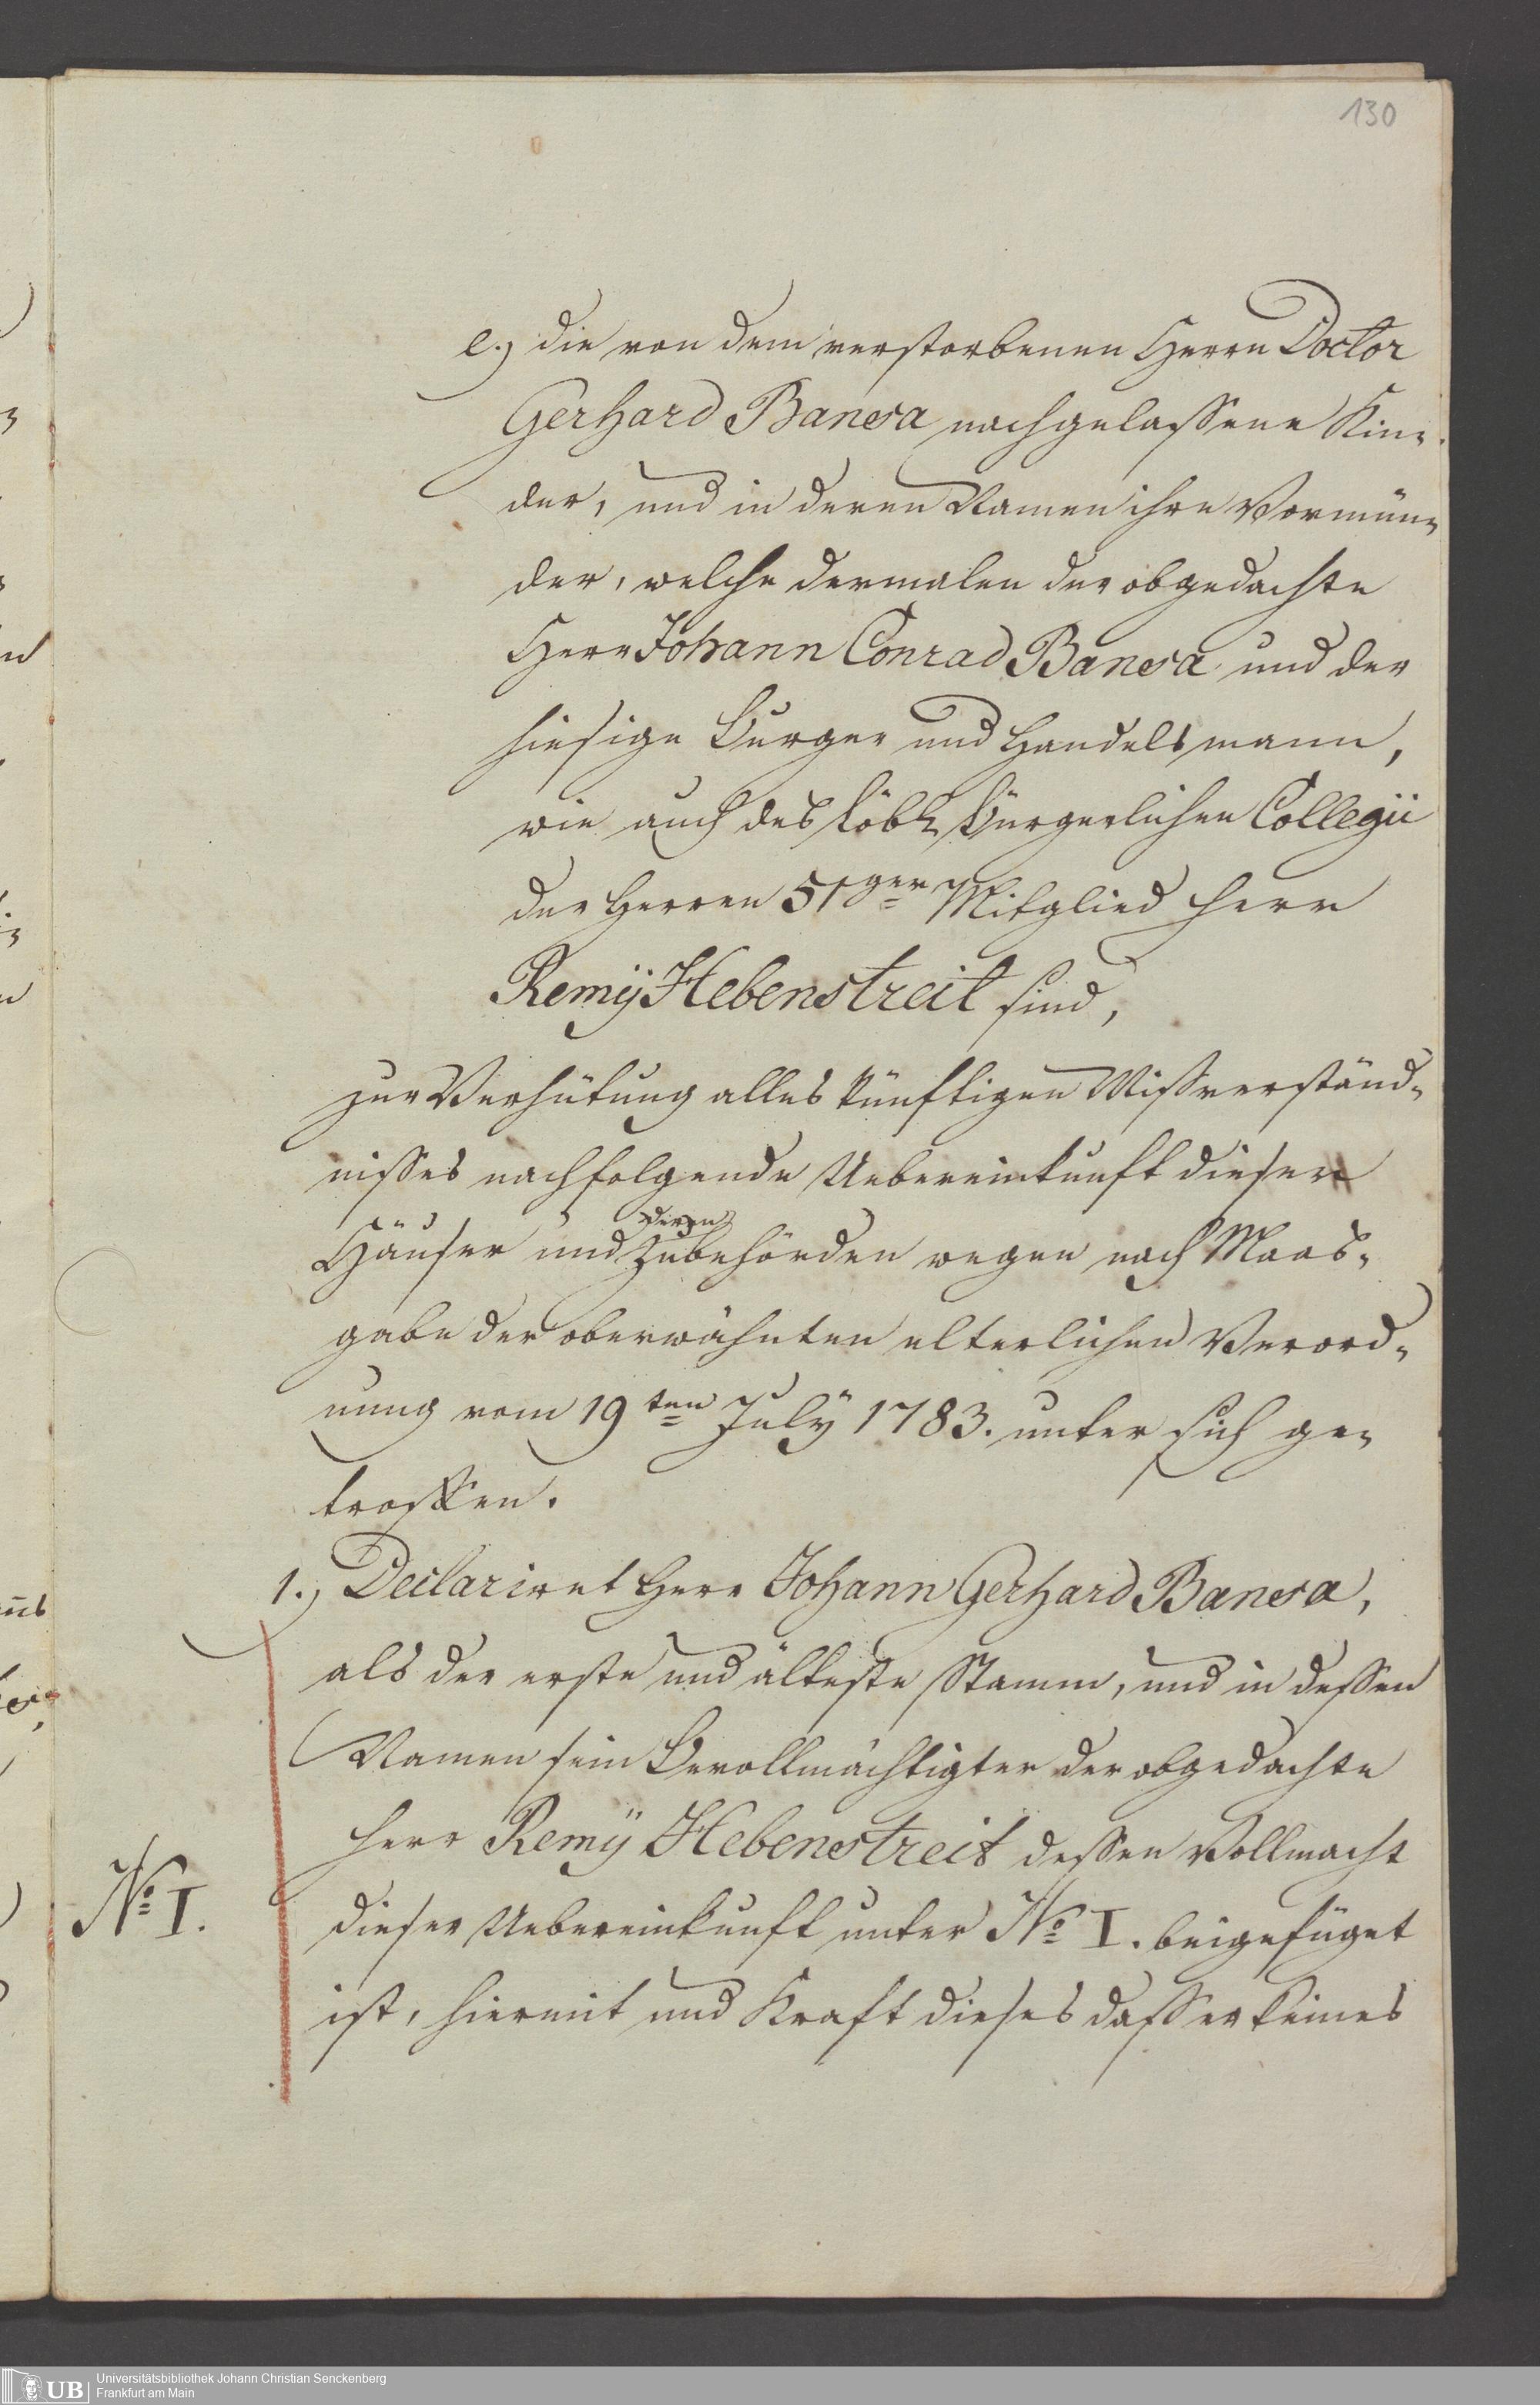 130
e.) die von dem verstorbenen Herrn Doctor
Gerhard Bansa nachgelaßene Kin-
der, und in deren Namen ihre Vormün-
der, welche dermalen der obgedachte
Herr Johann Conrad Bansa und der
hiesige Burger und Handelsmann,
wie auch des löbl. Bürgerlichen Collegii
der Herren 51ger Mitglied Herr
Remÿ Hebenstreit sind,
zur Verhütung alles künftigen Mißverständ-
nißes nachfolgende Uebereinkunft dieser
deren
Häuser und Zubehörden wegen nach Maas-
gabe der oberwähnten elterlichen Verord-
nung vom 19ten Julÿ 1783. unter sich ge-
troffen.
1.) Declariret Herr Johann Gerhard Bansa,
als der erste und älteste Stamm, und in deßen
Namen sein Bevollmächtigter der obgedachte
Herr Remÿ Hebenstreit deßen Vollmacht
No I.
dieser Uebereinkunft unter No I. beigefüget
ist, hiermit und Kraft dieses daß er keines
UB
Universitätsbibliothek Johann Christian Senckenberg
Frankfurt am Main